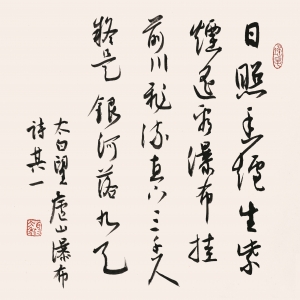 日照香爐生紫
煙遙看瀑布挂
前川飛流直下三千尺
疑是銀河落九天
太白望廬山瀑布
詩其一